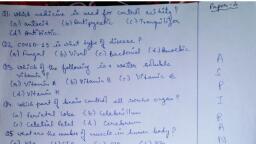 Q1. Which medicine is used for control acidity?
(a) antacid (b) Antipyretic (c) Tranquilizer
(d) Antibiotic
Q2 COVID-19 is what type of disease?
(a) Fungal (b) Viral (c) Bacterial (d)
Q3. which of the following is a water soluble
vitamin?
(a) Vitamin A (b) Vitamin B (c) Vitamin E
(d) Vitamin K
Q4. which part of brain control all organ?
(a) Parietal lobe (b) Cerebellum
(c) (d) Cerebrum
Q5 what are the number of muscle in human body?
Paper-1
A
S
P
I
R
A